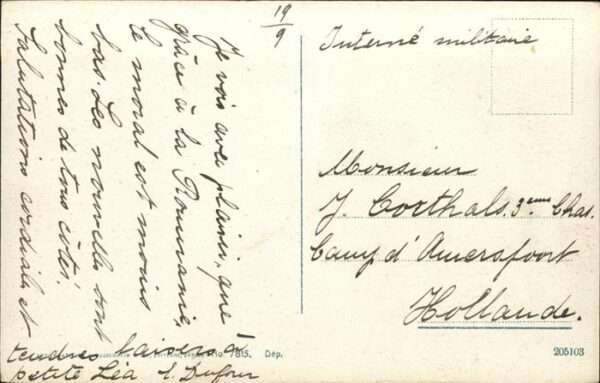 19/9
Je vois avec plaisir, que
grâce à la Roumanie,
le moral est moins
bas. Les nouvelles sont
bonnes de tous côtés.
Salutations cordiales et
tendres baisers à
petite Léa L. Dufour
Interné militaire
Monsieur
J. Corthals. 3eme Chas.
Camp d'Amersfoort
Hollande.
No 7815. Dep.
205103